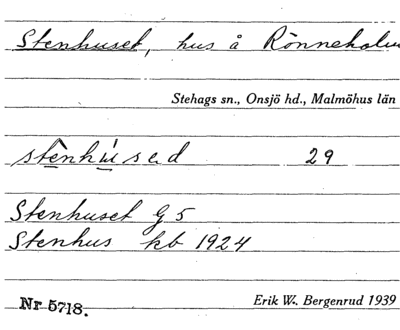 Stenhuset, hus å Rönneholm
Stehags sn., Onsjö hd., Malmöhus län
stenhúsed 29
Stenhuset G 5
Stenhus kb 1924
Nr 5718.
Erik W. Bergenrud 1939